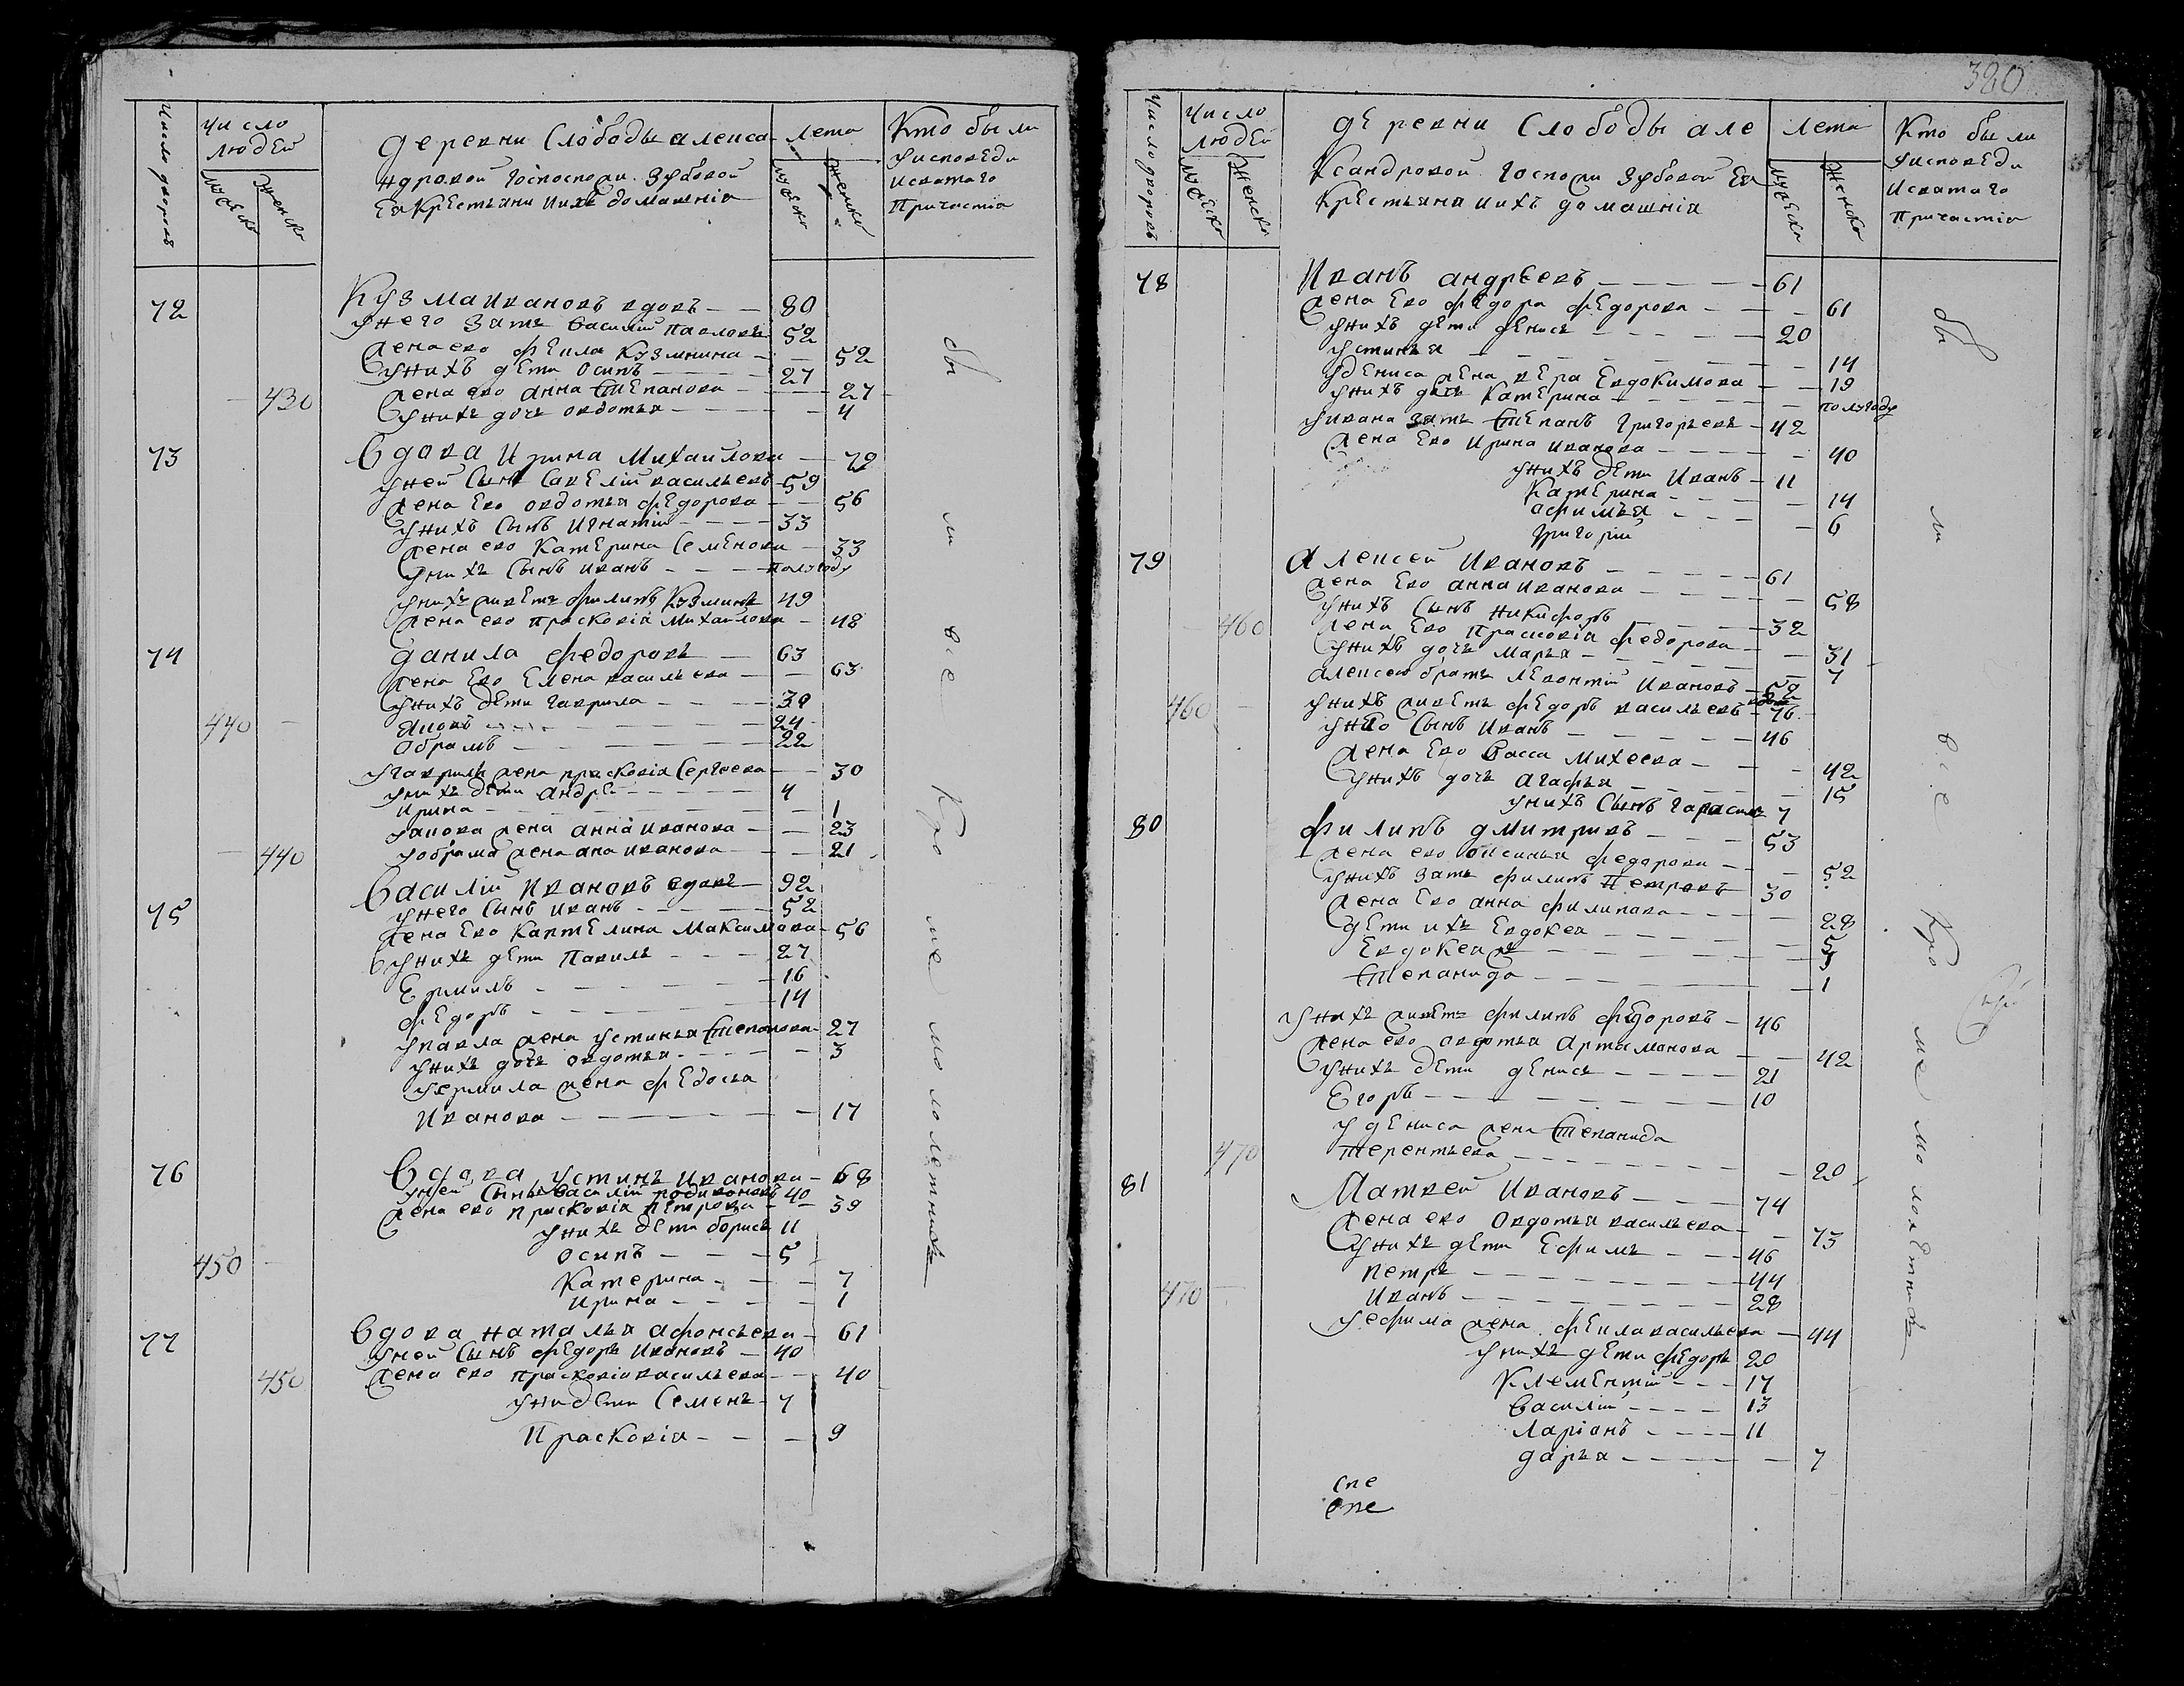 Число дворовъ
Число людей
мужеска
женска
деревни Слободы алекса
ндровой Госпоспожи Зубовой
Ея Крестьяни иихъ домашнiя
лета
мужеска
женска
Кто были
уисповеди
исвятаго
Причастiя
72 Кузма Ивановъ вдовъ 80
унего зать Василiй Павловъ 52
жена ево феkла Кузмина 52
унихъ дети Осипъ 27
430 жена ево анна Степанова 27
унихъ дочь овдотья 4
73 Вдова Ирина Михаилова 79
уней Сынъ Савелiй васильевъ 59
жена Ево овдотья федорова 56
унихъ Сынъ Игнатiй 33
жена ево Катерина Семенова 33
унихъ Сынъ иванъ полугоду
унихъ живетъ филипъ Кузминъ 49
жена ево Прасковiя Михаилова 48
74 данила федоровъ 63
жена Ево Елена васильева 63
унихъ дети гаврила 30
440 Яковъ 24
обрамъ 22
угаврилы жена прасковiя Сергеева 30
унихъ дети андрей 4
Ирина 1
уякова жена анна иванова 23
440 уобрама жена ана иванова 21
75 Василiй Ивановъ вдовъ 92
унего Сынъ иванъ 52
жена Ево Каптелина Максимова 56
унихъ дети Павилъ 27
Ермилъ 16
федоръ 14
упавла жена устинья Степанова 27
унихъ дочь овдотья 3
уермила жена федосья
Иванова 17
76 Вдова устинья иванова 68
уней Сынъ Василiй родивоновъ 40
жена ево прасковiя петрова 39
унихъ дети борисъ 11
450 осипъ 5
Катерина 7
ирина 1
77 Вдова наталья афонсьева 61
уней Сынъ федоръ ивановъ 40
450 жена ево прасковiя васильева 40
уни дети Семенъ 7
Прасковiя 9
бы ли все Кро ме малолетнихъ
380
Число дворовъ
Число
людей
мужеска
женска
деревни Слободы але
Ксандровой Госпожи Зубовой Ея
Крестьяня иихъ домашнiя
лета
мужеска
женска
Кто были
уисповеди
Исвятаго
Причастiя
78 Иванъ андреевъ 61
жена Ево федора федорова 61
унихъ дети денисъ 20
устинья 14
уДениса жена вера Евдокимова 19
унихъ дочь Катерина полугоду
уивана зать Степанъ григорьевъ 42
жена Ево Ирина иванова 40
унихъ дети Иванъ 11
Катерина 14
афимья 6
григорiй
79 Алексей Ивановъ 61
жена Ево анна иванова 58
унихъ Сынъ никифоръ 32
460 жена Ево Прасковiя федорова 31
унихъ дочь марья 7
алексею братъ левонтiй ивановъ 52
460 унихъ живетъ федоръ васильевъ вдовъ 76
унево Сынъ иванъ 46
жена Ево Васса михеева 42
унихъ дочь агафья 15
унихъ Сынъ гарасимъ 7
80 филипъ дмитривъ 53
жена ево оксинья федорова 52
унихъ зать филипъ Петровъ 30
жена Ево анна филипова 28
дети ихъ Евдокея 5
Евдокея ж 3
Степанида 1
унихъ живетъ филипъ федоровъ 46
жена ево овдотья артамонова 42
унихъ дети денисъ 21
Егоръ 10
у дениса жена Степанида
470 терентьева 20
81 Матвей Ивановъ 74
жена ево Овдотья васильева 73
унихъ дети Ефимъ 46
петръ 44
470 иванъ 28
уефима жена фекла васильева 44
унихъ дети федоръ 20
Клементiй 17
Василiй 13
ларiонъ 11
дарья 7
спе
спе
бы ли все Кро ме малолетнихъ